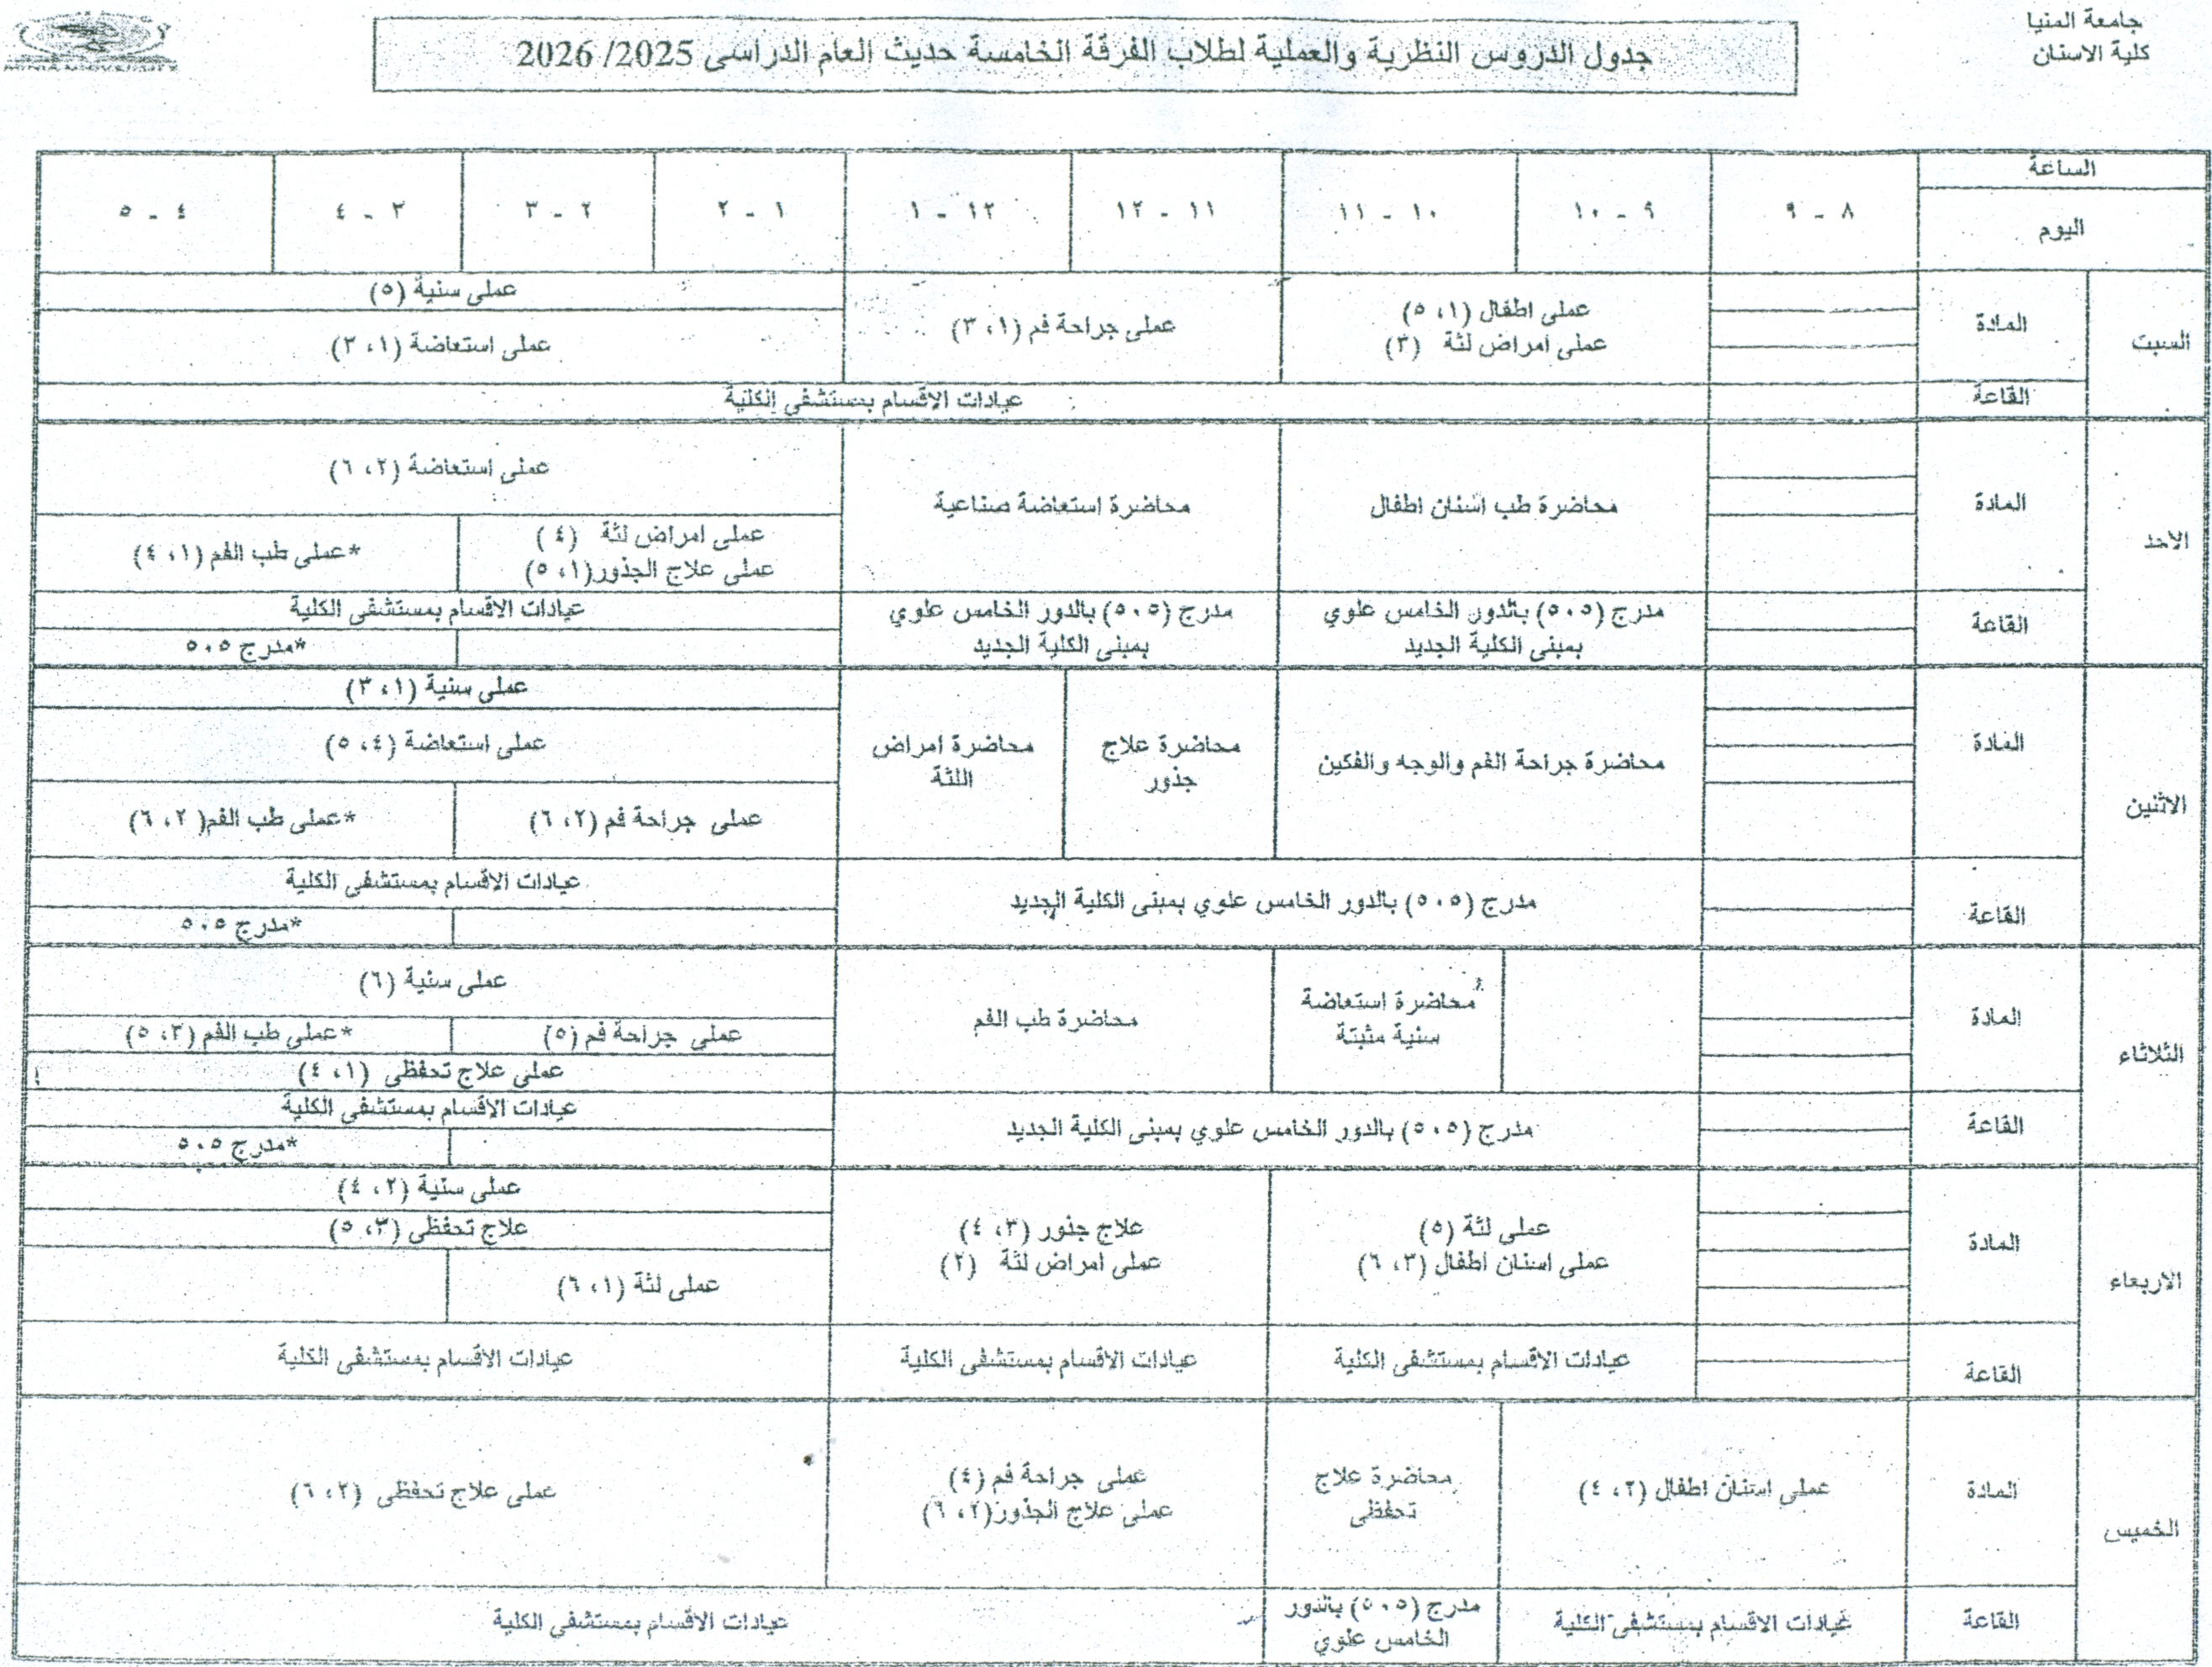 جامعة المنيا
كلية الاسنان
MINIA UNIVERSITY
جدول الدروس النظرية والعملية لطلاب الفرقة الخامسة حديث العام الدراسى 2025/ 2026
الساعة
اليوم
٨ - ٩
٩ - ١٠
١٠ - ١١
١١ - ١٢
١٢ - ١
١ - ٢
٢ - ٣
٣ - ٤
٤ - ٥
السبت
المادة
عملى اطفال (١، ٥)
عملى امراض لثة (٣)
عملى جراحة فم (١، ٣)
عملى سنية (٥)
عملى استعاضة (١، ٣)
القاعة
عيادات الاقسام بمستشفى الكلية
الاحد
المادة
محاضرة طب اسنان اطفال
محاضرة استعاضة صناعية
عملى استعاضة (٢، ٦)
عملى امراض لثة (٤)
عملى علاج الجذور(١، ٥)
*عملى طب الفم (١، ٤)
القاعة
مدرج (٥٠٥) بالدور الخامس علوي
بمبنى الكلية الجديد
مدرج (٥٠٥) بالدور الخامس علوي
بمبنى الكلية الجديد
عيادات الاقسام بمستشفى الكلية
*مدرج ٥٠٥
الاثنين
المادة
محاضرة جراحة الفم والوجه والفكين
محاضرة علاج
جذور
محاضرة امراض
اللثة
عملى سنية (١، ٣)
عملى استعاضة (٤، ٥)
عملى جراحة فم (٢، ٦)
*عملى طب الفم( ٢، ٦)
القاعة
مدرج (٥٠٥) بالدور الخامس علوي بمبنى الكلية الجديد
عيادات الاقسام بمستشفى الكلية
*مدرج ٥٠٥
الثلاثاء
المادة
محاضرة استعاضة
سنية مثبتة
محاضرة طب الفم
عملى سنية (٦)
عملى جراحة فم (٥)
*عملى طب الفم (٣، ٥)
عملى علاج تحفظى (١، ٤)
القاعة
مدرج (٥٠٥) بالدور الخامس علوي بمبنى الكلية الجديد
عيادات الاقسام بمستشفى الكلية
*مدرج ٥٠٥
الاربعاء
المادة
عملى لثة (٥)
عملى اسنان اطفال (٣، ٦)
علاج جذور (٣، ٤)
عملى امراض لثة (٢)
عملى سنية (٢، ٤)
علاج تحفظى (٣، ٥)
عملى لثة (١، ٦)
القاعة
عيادات الاقسام بمستشفى الكلية
عيادات الاقسام بمستشفى الكلية
عيادات الاقسام بمستشفى الكلية
الخميس
المادة
عملى اسنان اطفال (٢، ٤)
محاضرة علاج
تحفظى
عملى جراحة فم (٤)
عملى علاج الجذور(٢، ٦)
عملى علاج تحفظى (٢، ٦)
القاعة
عيادات الاقسام بمستشفى الكلية
مدرج (٥٠٥) بالدور
الخامس علوي
عيادات الاقسام بمستشفى الكلية